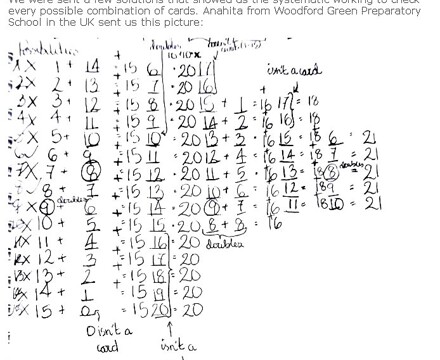 We were sent a few solutions that showed us the systematic working to check
every possible combination of cards. Anahita from Woodford Green Preparatory
School in the UK sent us this picture:
isn't a card
1 + 14 = 15 6 20 17
2 + 13 = 15 7 20 16
3 + 12 = 15 8 20 15 + 1 = 16 17 = 18
4 + 11 = 15 9 20 14 + 2 = 16 16 = 18
5 + 10 = 15 10 20 13 + 3 = 16 15 = 18 6 = 21
6 + 9 = 15 11 = 20 12 + 4 = 16 14 = 18 7 = 21
7 + 8 = 15 12 = 20 11 + 5 = 16 13 = 18 8 = 21
8 + 7 = 15 13 = 20 10 + 6 = 16 12 = 18 9 = 21
9 + 6 = 15 14 = 20 9 + 7 = 16 11 = 18 10 = 21
10 + 5 = 15 15 = 20 8 + 8 = 16
doubles
11 + 4 = 15 16 = 20
12 + 3 = 15 17 = 20
13 + 2 = 15 18 = 20
14 + 1 = 15 19 = 20
15 + 0 = 15 20 = 20
0 isn't a
card
isn't a